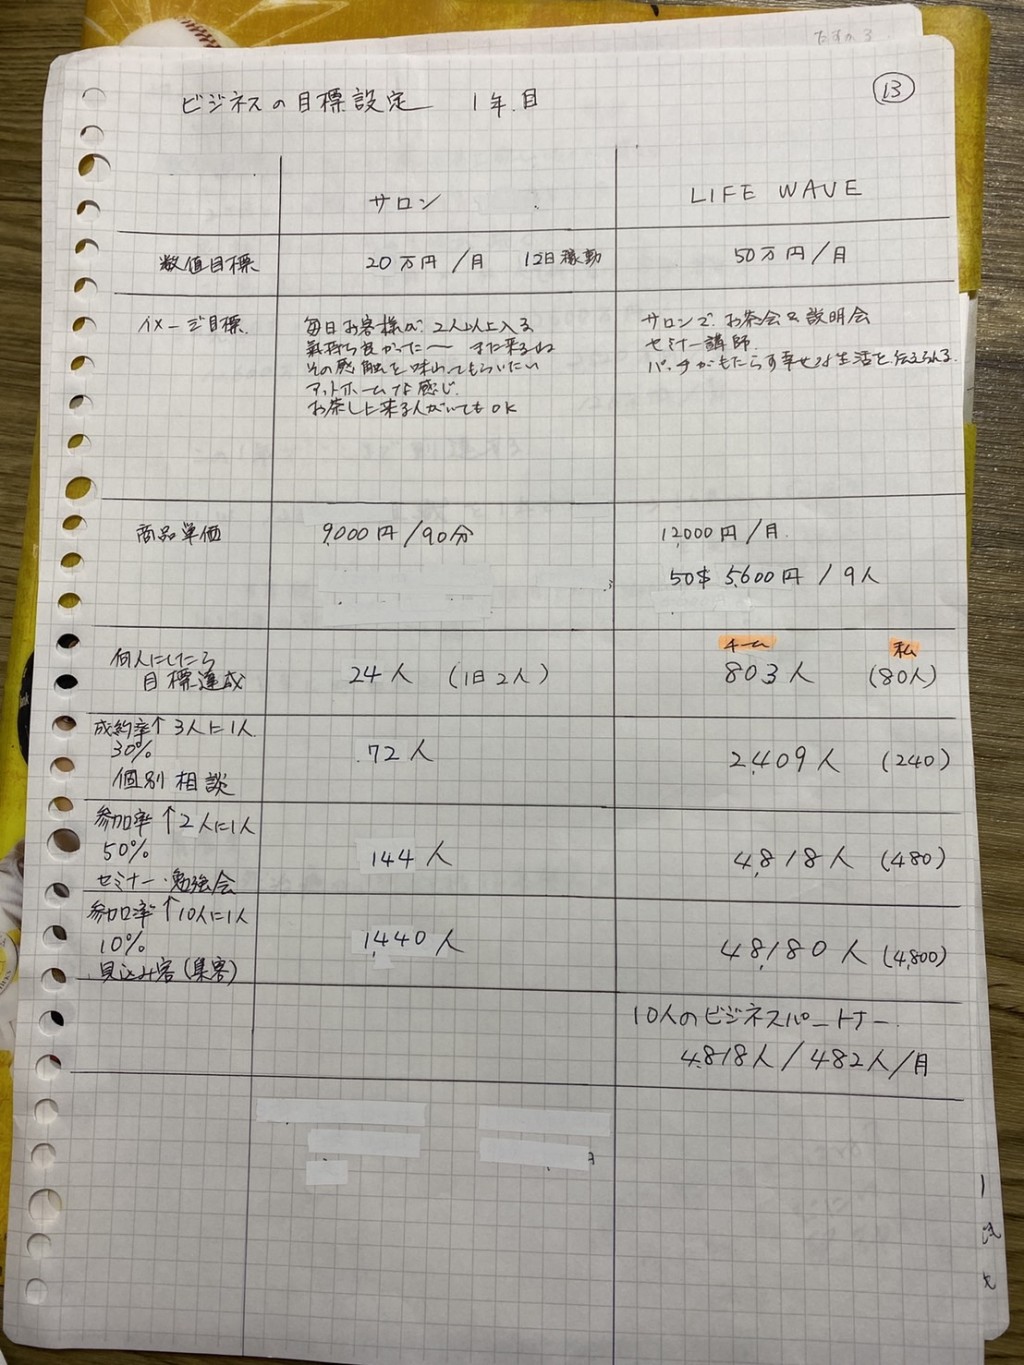 ビジネスの目標設定 1年目
13
サロン
LIFE WAVE
数値目標
20万円/月 12日稼動
50万円/月
イメージ目標
毎日お客様が2人以上入る
氣持ち良かった〜 また来るね
その感触を味わってもらいたい
アットホームな感じ
お茶しに来る人がいてもOK
サロンでお茶会&説明会
セミナー講師
パッチがもたらす幸せな生活を伝えられる
商品単価
9,000円/90分
12,000円/月
50$ 5,600円/9人
何人にしたら
目標達成
24人 (1日2人)
チーム
803人
私
(80人)
成約率↑3人に1人
30%
個別相談
72人
2,409人 (240)
参加率↑2人に1人
50%
セミナー・勉強会
144人
4,818人 (480)
参加率↑10人に1人
10%
見込み客(集客)
1,440人
48,180人 (4,800)
10人のビジネスパートナー
4,818人/482人/月